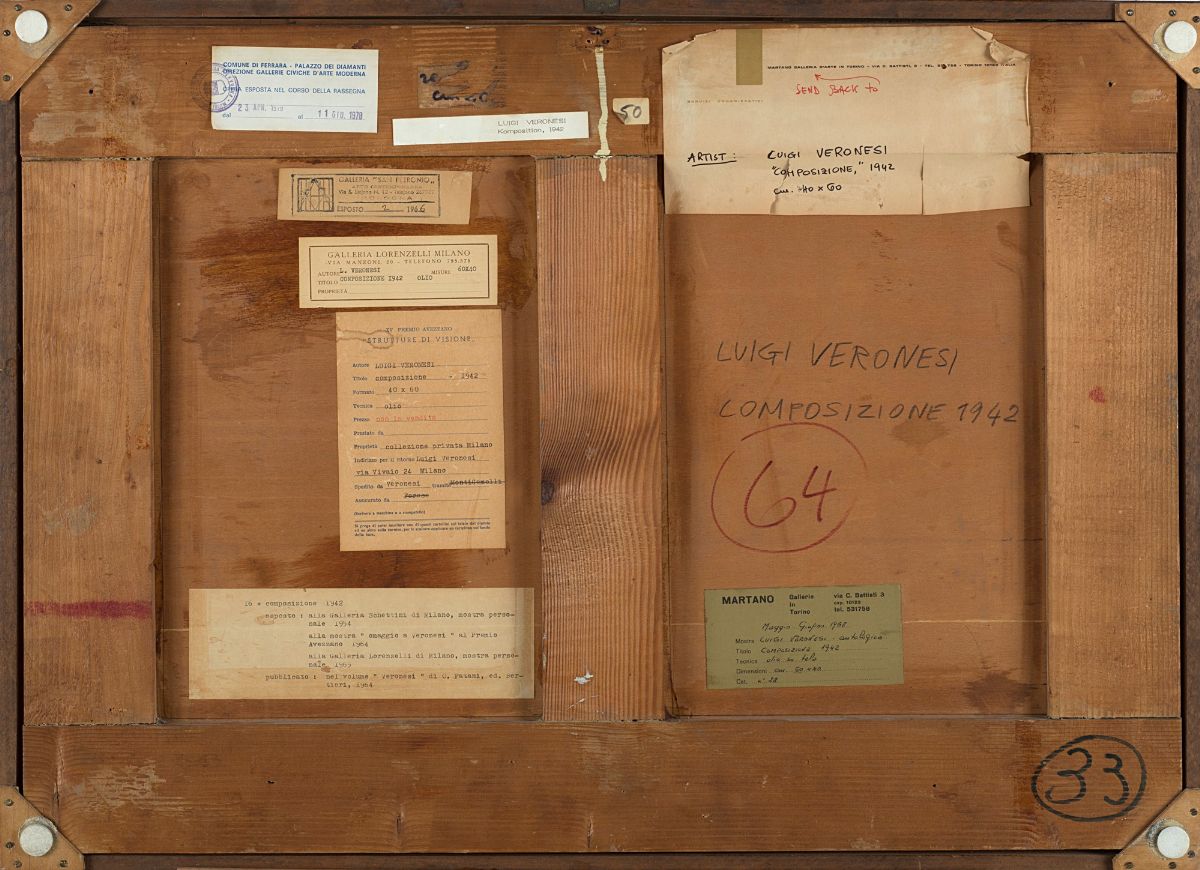 COMUNE DI FERRARA - PALAZZO DEI DIAMANTI
DIREZIONE GALLERIE CIVICHE D'ARTE MODERNA
OPERA ESPOSTA NEL CORSO DELLA RASSEGNA
dal 23 APR. 1978 al 11 GIU. 1978
LUIGI VERONESI
Komposition, 1942
50
MARTANO GALLERIA D'ARTE IN TORINO - VIA C. BATTISTI, 3 - TEL.
SEND BACK TO
ARTIST: LUIGI VERONESI
"COMPOSIZIONE," 1942
cm. 40 x 60
GALLERIA "SAN PETRONIO"
ARTE CONTEMPORANEA
BOLOGNA
ESPOSTO 2 1966
GALLERIA LORENZELLI MILANO
VIA MANZONI, 20 - TELEFONO 795.576
AUTORE L. VERONESI MISURE 60X40
TITOLO COMPOSIZIONE 1942 OLIO
PROPRIETÀ
XV PREMIO AVEZZANO
"STRUTTURE DI VISIONE"
Autore LUIGI VERONESI
Titolo composizione - 1942
Formato 40 x 60
Tecnica olio
Prezzo non in vendita
Premiato da
Proprietà collezione privata Milano
Indirizzo per il ritorno Luigi Veronesi
via Vivaio 24 Milano
Spedito da Veronesi tramite
Assicurato da
LUIGI VERONESI
COMPOSIZIONE 1942
64
16 - composizione 1942
esposto : alla Galleria Schettini di Milano, mostra perso-
nale 1954
alla mostra " omaggio a Veronesi " al Premio
Avezzano 1964
alla Galleria Lorenzelli di Milano, mostra perso-
nale 1965
pubblicato : nel volume " Veronesi " di
MARTANO Galleria in Torino via C. Battisti 3
cap. 10123
tel. 531758
Maggio Giugno 1968
Mostra LUIGI VERONESI - antologica
Titolo COMPOSIZIONE 1942
Tecnica olio su tela
Dimensioni cm.
Cat. n°
33